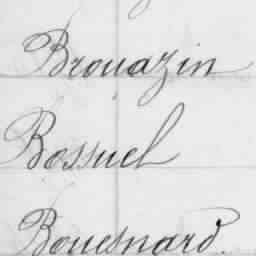 Brouazin
Bossuel
Bouesnard.